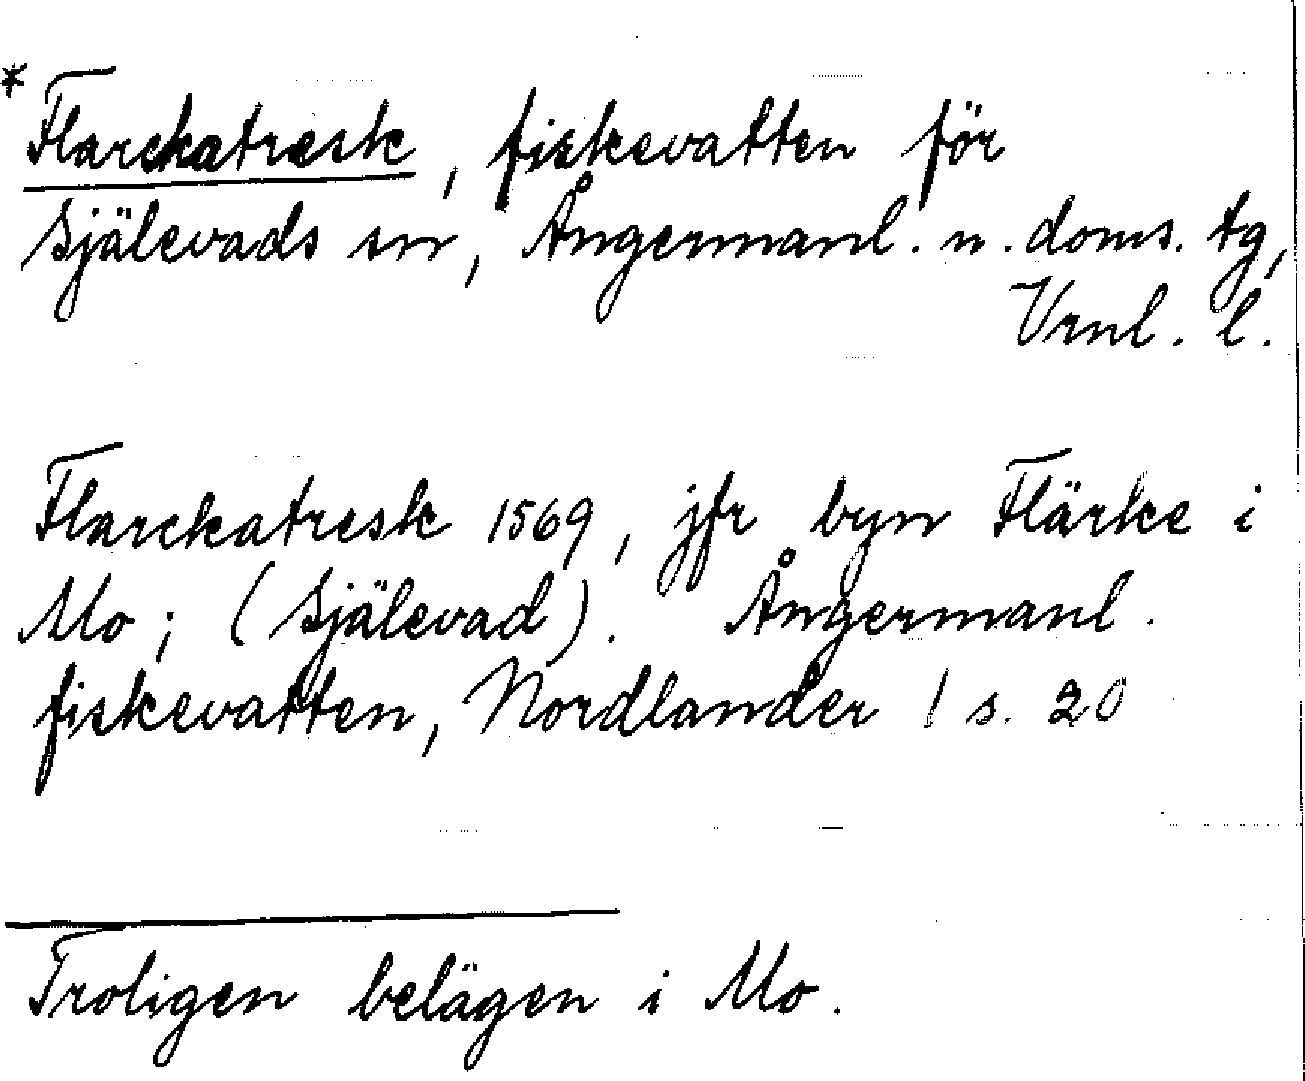 * Flarckatresk, fiskevatten för
Själevads sn, Ångermanl. n. doms. tg,
Vrnl. l.
Flarckatresk 1569, jfr byn Flärke i
Mo; (Själevad). Ångermanl.
fiskevatten, Nordlander 1 s. 20
Troligen belägen i Mo.